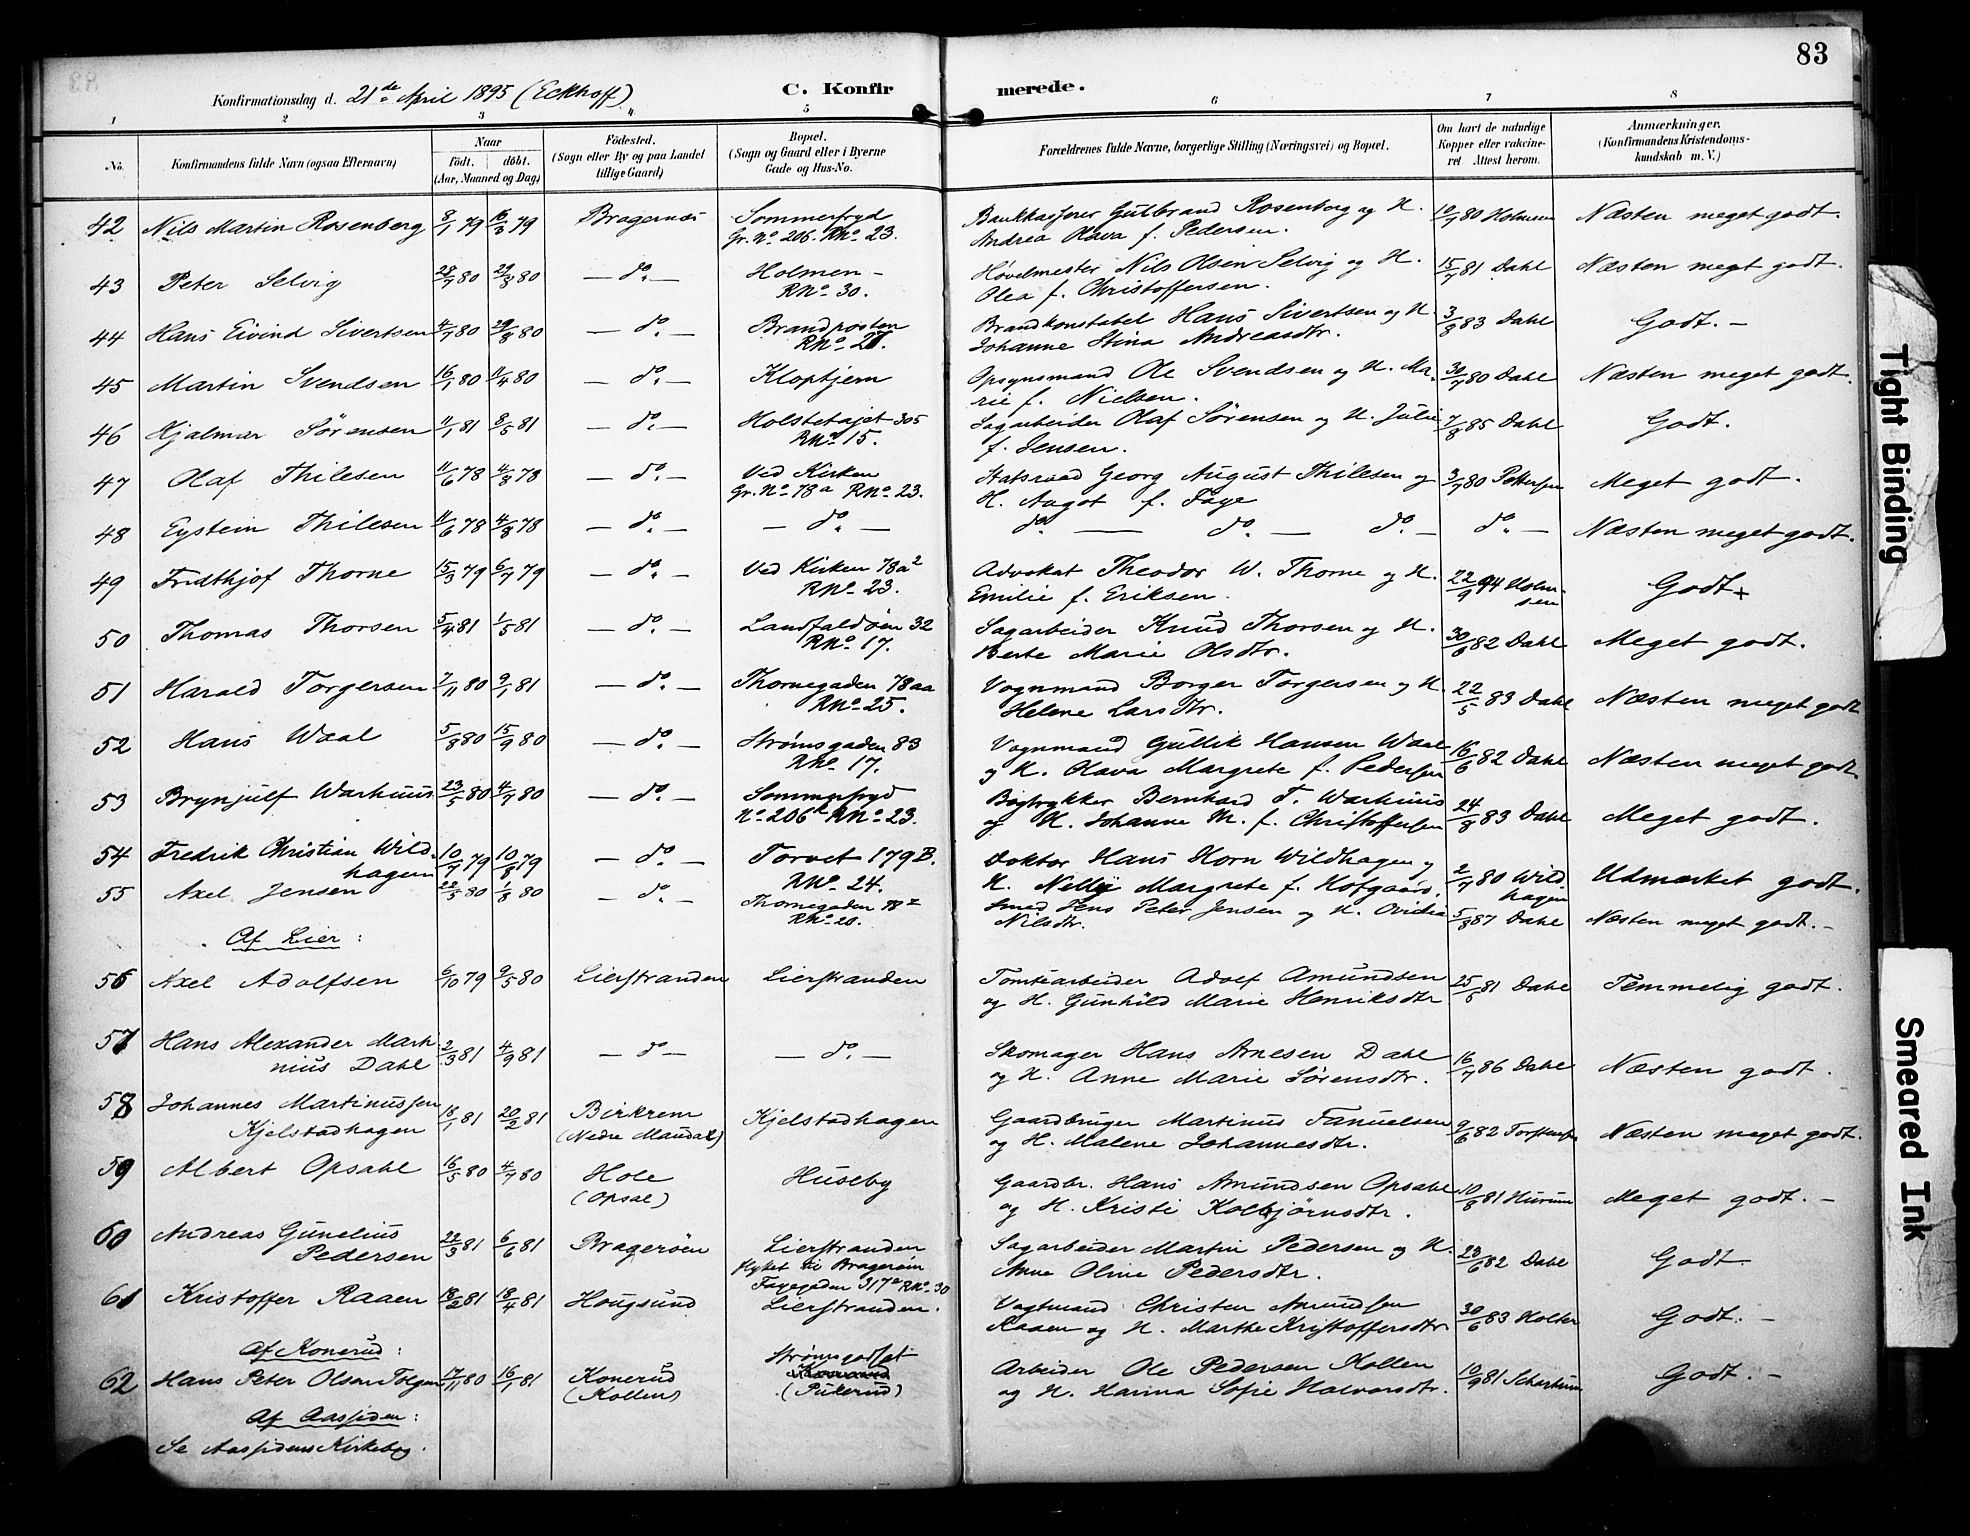 83
Konfirmationsdag d. 21de April 1895 (Eckhoff)
C. Konfirmerede.
1 2 3 4 5 6 7 8
No. Konfirmandens fulde Navn (ogsaa Efternavn) Naar født. døbt. (Aar, Maaned og Dag) Födested. (Sogn eller By og paa Landet tillige Gaard) Bopæl. (Sogn og Gaard eller i Byerne Gade og Hus-No. Forældrenes fulde Navne, borgerlige Stilling (Næringsvei) og Bopæl. Om havt de naturlige Kopper eller vakcineret Attest herom. Anmærkninger. (Konfirmandens Kristendomskundskab m. V.)
42 Nils Martin Rosenberg 8/1 79 16/3 79 Bragernæs Sommerfryd Gr. No 206. RNo 23. Bankkasserer Gulbrand Rosenberg og H. Andrea Olava f. Pedersen. 10/7 80 Holmsen Næsten meget godt.
43 Peter Selvig 28/7 80 29/8 80 — do — Holmen - RNo 30. Høvelmester Nils Olsen Selvig og H. Olea f. Christoffersen. 15/7 81 Dahl Næsten meget godt.
44 Hans Eivind Sivertsen 4/7 80 29/8 80 — do — Brandposten RNo 21. Brandkonstabel Hans Sivertsen og H. Johanne Stina Andreasdtr. 3/8 83 Dahl Godt. -
45 Martin Svendsen 16/1 80 11/4 80 — do — Kloptjern Opsynsmand Ole Svendsen og H. Marie f. Nielsen. 30/7 80 Dahl Næsten meget godt.
46 Hjalmar Sørensen 11/1 81 8/5 81 — do — Holstetajet 305 RNo 15. Sagarbeider Olaf Sørensen og H. Julie f. Jensen. 7/8 85 Dahl Godt.
47 Olaf Thilesen 11/6 78 4/8 78 — do — Ved Kirken Gr. No 78a RNo 23. Statsraad Georg August Thilesen og H. Aagot f. Faye 3/7 80 Pettersen Meget godt.
48 Eystein Thilesen 11/6 78 4/8 78 — do — — do — do — do — do — do — Næsten meget godt.
49 Fridthjof Thorne 15/3 79 6/7 79 — do — Ved Kirken 78a2 RNo 23. Advokat Theodor W. Thorne og H. Emilie f. Eriksen. 22/9 94 Holmsen Godt +
50 Thomas Thorsen 5/4 81 1/5 81 — do — Landfaldøen 32 RNo 17. Sagarbeider Knud Thorsen og H. Berte Marie Olsdtr. 30/6 82 Dahl Meget godt.
51 Harald Torgersen 7/11 80 9/1 81 — do — Thornegaden 78aa RNo 25. Vognmand Borger Torgersen og H. Helene Larsdtr. 22/5 83 Dahl Næsten meget godt
52 Hans Waal 5/8 80 15/9 80 — do — Strømsgaden 83 RNo 17. Vognmand Gullik Hansen Waal og H. Olava Margrete f. Pedersen 16/6 82 Dahl Næsten meget godt.
53 Brynjulf Warhuus 23/5 80 4/7 80 — do — Sommerfryd No 206k RNo 23. Bogtrykker Bernhard T. Warhuus og H. Johanne M. f. Christoffersen 24/8 83 Dahl Meget godt.
54 Fredrik Christian Wildhagen 10/7 79 10/8 79 — do — Torvet 179 B. RNo 24. Doktor Hans Horn Wildhagen og H. Nelly Margrete f. Hofgaard. 2/7 80 Wildhagen Udmærket godt.
55 Axel Jensen 22/5 80 1/8 80 — do — Thornegaden 78z RNo 20. Smed Jens Peter Jensen og H. Ovidia Nilsdtr. 5/8 87 Dahl Næsten meget godt. -
Af Lier:
56 Axel Adolfsen 6/10 79 9/5 80 Lierstranden Lierstranden Tomtearbeider Adolf Amundsen og H. Gunhild Marie Henriksdtr 25/5 81 Dahl Temmelig godt.
57 Hans Alexander Martinius Dahl 2/3 81 4/9 81 — do — — do — Skomager Hans Arnesen Dahl og H. Anne Marie Sørensdtr. 16/7 86 Dahl Næsten godt.
58 Johannes Martinussen Kjelstadhagen 18/1 81 20/2 81 Birkrem (Nedre Maudal) Kjelstadhagen Gaardbruger Martinus Tanuelsen og H. Malene Johannesdtr. 9/6 82 Torstensen Næsten meget godt.
59 Albert Opsahl 16/5 80 4/7 80 Hole (Opsal) Huseby Gaardbr. Hans Amundsen Opsahl og H. Kristi Kolbjørnsdtr. 10/8 81 Hurum Meget godt. -
60 Andreas Gunelius Pedersen 22/3 81 6/6 81 Bragerøen Lierstranden flyttet til Bragerøen Fayegaden 317a RNo 30 Sagarbeider Martin Pedersen og H. Anne Oline Pedersdtr. 23/6 82 Dahl Godt
61 Kristoffer Raaen 18/2 81 18/4 81 Hougsund Lierstranden. Vagtmand Christen Amundsen Raaen og H. Marthe Kristoffersdtr 30/6 83 Holter Godt. -
Af Konerud:
62 Hans Peter Olsen 17/11 80 16/1 81 Konerud (Kollen) Strømsgodset (Puterud) Arbeider Ole Pedersen Kollen og H. Hanna Sofie Halvorsdtr. 10/9 81 Scharhum Godt. -
Af Aassiden:
Se Aassidens Kirkebog.
Tight Binding
Smeared Ink